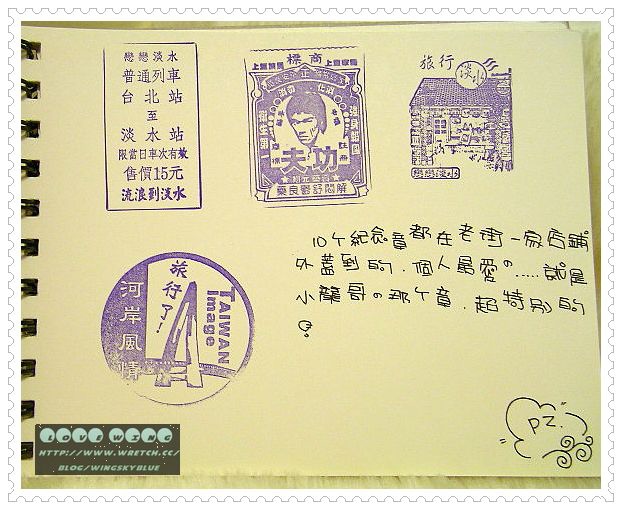 戀戀淡水
普通列車
台北站
至
淡水站
限當日車次有效
售價15元
流浪到淡水
商標
功夫
註冊
解悶舒鬱良藥
旅行
淡水
戀戀淡水
旅行了!
河岸風情
TAIWAN
Image
10个紀念章都在老街一家店鋪
外蓋到的.個人最愛の.....就是
小龍哥の那个章.超特別的
PZ.
LOVE WING
HTTP://WWW.WRETCH.CC/
BLOG/WINGSKYBLUE